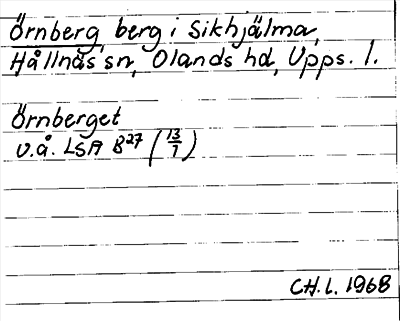 Örnberg, berg i Sikhjälma,
Hållnäs sn, Olands hd, Upps. l.
Örnberget
u.å. LSA B27 (13/7)
CH.L. 1968